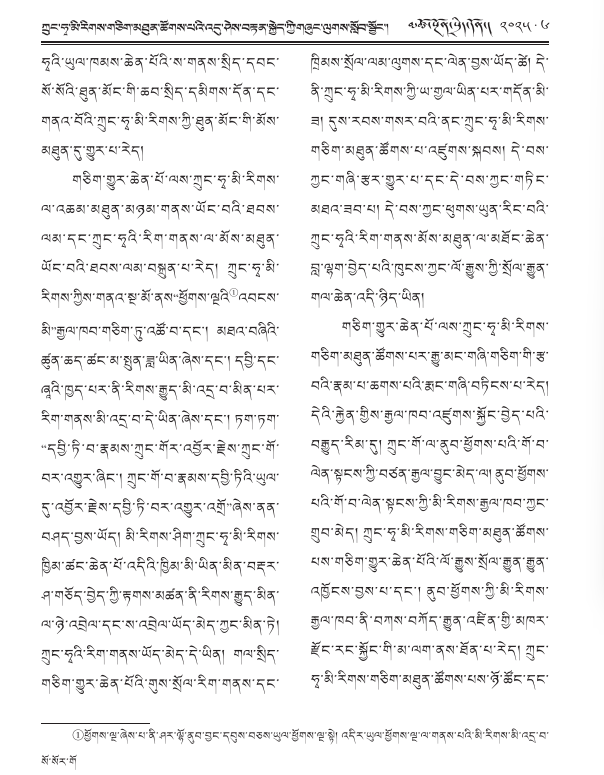 ཀྲུང་ཧྭ་མི་རིགས་གཅིག་མཐུན་ཚོགས་པའི་འདུ་ཤེས་བརྟན་སྐྱེད་ཀྱི་གཞུང་ལུགས་སློབ་སྦྱོང་།
༢༠༢༥ · ༦
ཧྭའི་ཡུལ་ཁམས་ཆེན་པོའི་ས་གནས་སྲིད་དབང་
སོ་སོའི་ཐུན་མོང་གི་ཆབ་སྲིད་དམིགས་དོན་དང་
གནའ་བོའི་ཀྲུང་ཧྭ་མི་རིགས་ཀྱི་ཐུན་མོང་གི་མོས་
མཐུན་དུ་གྱུར་པ་རེད།
གཅིག་གྱུར་ཆེན་པོ་ལས་ཀྲུང་ཧྭ་མི་རིགས་
ལ་འཆམ་མཐུན་མཉམ་གནས་ཡོང་བའི་ཐབས་
ལམ་དང་ཀྲུང་ཧྭའི་རིག་གནས་ལ་མོས་མཐུན་
ཡོང་བའི་ཐབས་ལམ་བསྐྲུན་པ་རེད། ཀྲུང་ཧྭ་མི་
རིགས་ཀྱིས་གནའ་སྔ་མོ་ནས“ཕྱོགས་ལྔའི①འབངས་
མི”རྒྱལ་ཁབ་གཅིག་ཏུ་འཚོ་བ་དང་། མཐའ་བཞིའི་
ཚུན་ཆད་ཚང་མ་སྤུན་ཟླ་ཡིན་ཞེས་དང་། དབྱི་དང་
ཞྭའི་ཁྱད་པར་ནི་རིགས་རྒྱུད་མི་འདྲ་བ་མིན་པར་
རིག་གནས་མི་འདྲ་བ་དེ་ཡིན་ཞེས་དང་། ཏག་ཏག་
“དབྱི་ཏི་བ་རྣམས་ཀྲུང་གོར་འབྱོར་རྗེས་ཀྲུང་གོ་
བར་འགྱུར་ཞིང་། ཀྲུང་གོ་བ་རྣམས་དབྱི་ཏིའི་ཡུལ་
དུ་འབྱོར་རྗེས་དབྱི་ཏི་བར་འགྱུར་འགྲོ”ཞེས་ནན་
བཤད་བྱས་ཡོད། མི་རིགས་ཤིག་ཀྲུང་ཧྭ་མི་རིགས་
ཁྱིམ་ཚང་ཆེན་པོ་འདིའི་ཁྱིམ་མི་ཡིན་མིན་བརྡར་
ཤ་གཅོད་བྱེད་ཀྱི་རྟགས་མཚན་ནི་རིགས་རྒྱུད་མིན་
ལ་ཉེ་འབྲེལ་དང་ས་འབྲེལ་ཡོད་མེད་ཀྱང་མིན་ཏེ།
ཀྲུང་ཧྭའི་རིག་གནས་ཡོད་མེད་དེ་ཡིན། གལ་སྲིད་
གཅིག་གྱུར་ཆེན་པོའི་གུས་སྲོལ་རིག་གནས་དང་
ཁྲིམས་སྲོལ་ལམ་ལུགས་དང་ལེན་བྱས་ཡོད་ཚེ། དེ་
ནི་ཀྲུང་ཧྭ་མི་རིགས་ཀྱི་ཡ་གྱལ་ཡིན་པར་གདོན་མི་
ཟ། དུས་རབས་གསར་བའི་ནང་ཀྲུང་ཧྭ་མི་རིགས་
གཅིག་མཐུན་ཚོགས་པ་འཛུགས་སྐབས། དེ་བས་
ཀྱང་གཞི་རྩར་གྱུར་པ་དང་དེ་བས་ཀྱང་གཏིང་
མཐའ་ཟབ་པ། དེ་བས་ཀྱང་ཕུགས་ཡུན་རིང་བའི་
ཀྲུང་ཧྭའི་རིག་གནས་མོས་མཐུན་ལ་མཐོང་ཆེན་
བླ་ལྷག་བྱེད་པའི་ཁུངས་ཀྱང་ལོ་རྒྱུས་ཀྱི་སྲོལ་རྒྱུན་
གལ་ཆེན་འདི་ཉིད་ཡིན།
གཅིག་གྱུར་ཆེན་པོ་ལས་ཀྲུང་ཧྭ་མི་རིགས་
གཅིག་མཐུན་ཚོགས་པར་རྒྱུ་མང་གཞི་གཅིག་གི་རྩ་
བའི་རྣམ་པ་ཆགས་པའི་རྨང་གཞི་བཏིངས་པ་རེད།
དེའི་རྐྱེན་གྱིས་རྒྱལ་ཁབ་འཛུགས་སྐྱོང་བྱེད་པའི་
བརྒྱུད་རིམ་དུ། ཀྲུང་གོ་ལ་ནུབ་ཕྱོགས་པའི་གོ་བ་
ལེན་སྟངས་ཀྱི་བཙན་རྒྱལ་བྱུང་མེད་ལ། ནུབ་ཕྱོགས་
པའི་གོ་བ་ལེན་སྟངས་ཀྱི་མི་རིགས་རྒྱལ་ཁབ་ཀྱང་
གྲུབ་མེད། ཀྲུང་ཧྭ་མི་རིགས་གཅིག་མཐུན་ཚོགས་
པས་གཅིག་གྱུར་ཆེན་པོའི་ལོ་རྒྱུས་སྲོལ་རྒྱུན་རྒྱུན་
འཁྱོངས་བྱས་པ་དང་། ནུབ་ཕྱོགས་ཀྱི་མི་རིགས་
རྒྱལ་ཁབ་ནི་བཀས་བཀོད་རྒྱུན་འཛིན་གྱི་མཁར་
རྫོང་རང་སྐྱོང་གི་མ་ལག་ནས་ཐོན་པ་རེད། ཀྲུང་
ཧྭ་མི་རིགས་གཅིག་མཐུན་ཚོགས་པས་ཉོ་ཚོང་དང་
①ཕྱོགས་ལྔ་ཞེས་པ་ནི་ཤར་ལྷོ་ནུབ་བྱང་དབུས་བཅས་ཡུལ་ཕྱོགས་ལྔ་སྟེ། འདིར་ཡུལ་ཕྱོགས་ལྔ་ལ་གནས་པའི་མི་རིགས་མི་འདྲ་བ་
སོ་སོར་གོ